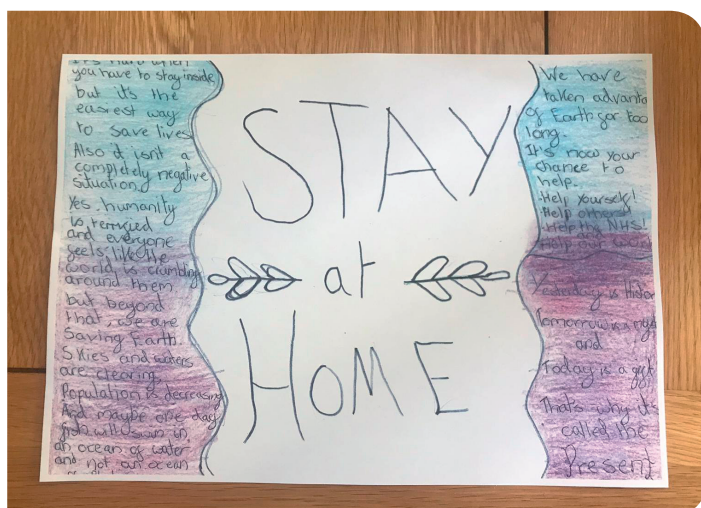 It's hard when
you have to stay inside
but it's the
easiest way
to save lives
Also it isn't a
completely negative
situation
Yes humanity
is terrified
and everyone
feels like the
world is crumbling
around them
but beyond
that, we are
Saving Earth.
Skies and waters
are clearing,
Population is decreasing
And maybe one day
fish will swim in
an ocean of water
and not an ocean
STAY
at
HOME
We have
taken advanta
of Earth for too
long.
It's now your
chance to
help.
Help yourself!
Help others!
Help the NHS!
and
Help our world
Yesterday is Histor
Tomorrow is a myst
and
Today is a gift
That's why it's
called the
Present